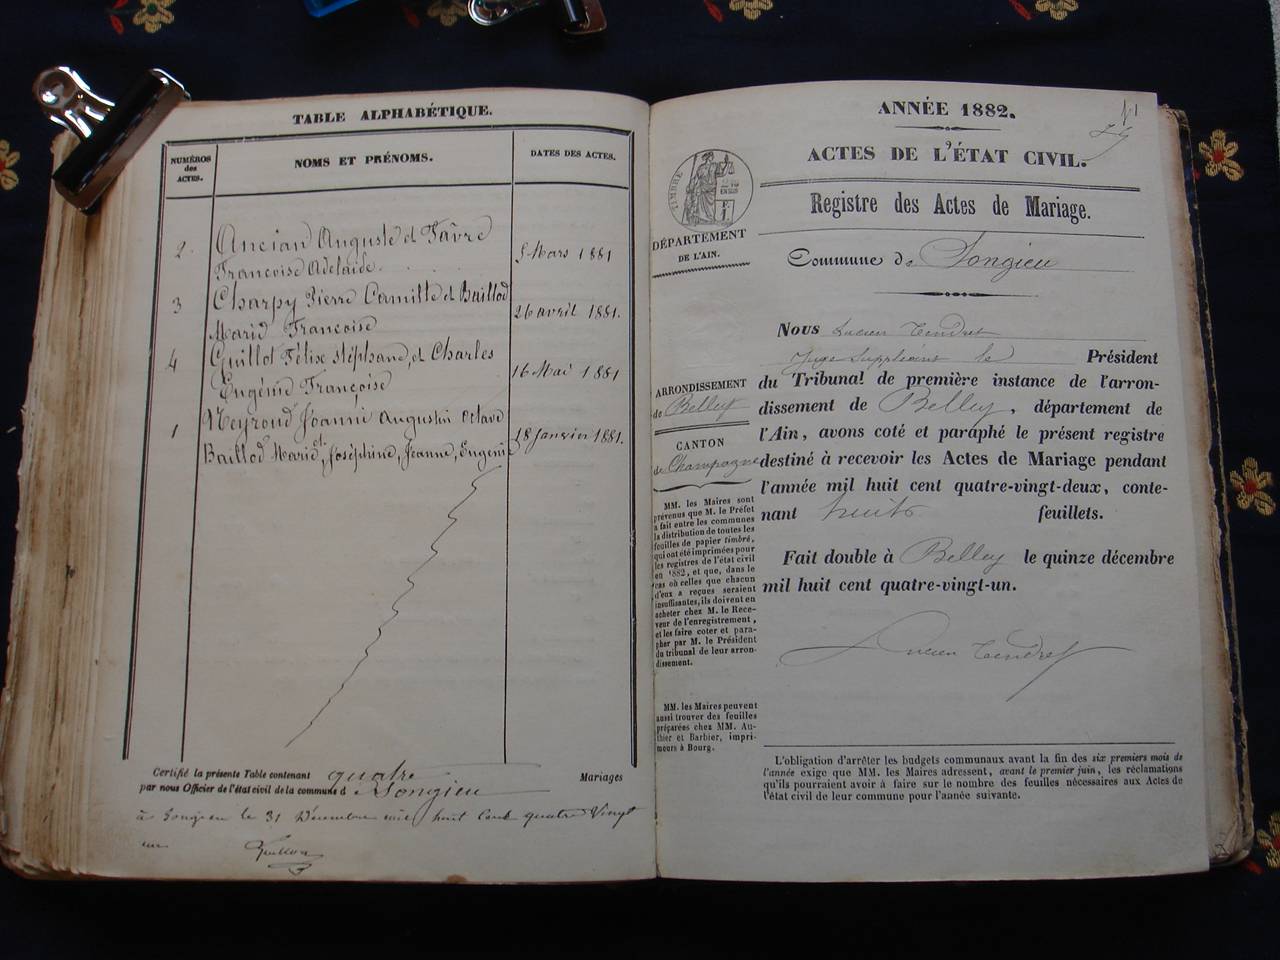 TABLE ALPHABÉTIQUE.
NUMÉROS
des
ACTES.
NOMS ET PRÉNOMS.
DATES DES ACTES.
2. Ancian Auguste et Favre
Françoise Adélaïde. 5 Mars 1881
3 Charpy Pierre Camille et Baillod
Marie Françoise 26 avril 1881.
4 Guillot Félix Stéphane, et Charles
Eugénie Françoise 16 Mai 1881
1 Neyroud Joanni Augustin Octave
et
Baillod Marie, Joséphine, Jeanne, Eugénie 18 Janvier 1881.
Certifié la présente Table contenant quatre Mariages
par nous Officier de l'état civil de la commune d Songieu
à Songieu le 31 Décembre mil huit cent quatre vingt
un
Guillon
ANNÉE 1882.
ACTES DE L'ÉTAT CIVIL.
Registre des Actes de Mariage.
TIMBRE
DÉPARTEMENT
DE L'AIN.
Commune de Songieu
Nous Lucien Tendret
Juge Suppléant le Président
du Tribunal de première instance de l'arron-
dissement de Belley, département de
l'Ain, avons coté et paraphé le présent registre
destiné à recevoir les Actes de Mariage pendant
l'année mil huit cent quatre-vingt-deux, conte-
nant huit feuillets.
Fait double à Belley le quinze décembre
mil huit cent quatre-vingt-un.
Lucien Tendret
ARRONDISSEMENT
de Belley
CANTON
de Champagne
MM. les Maires sont
prévenus que M. le Préfet
a fait entre les communes
la distribution de toutes les
feuilles de papier timbré,
qui ont été imprimées pour
les registres de l'état civil
en 1882, et que, dans le
cas où celles que chacun
d'eux a reçues seraient
insuffisantes, ils doivent en
acheter chez M. le Rece-
veur de l'enregistrement,
et les faire coter et para-
pher par M. le Président
du tribunal de leur arron-
dissement.
MM. les Maires peuvent
aussi trouver des feuilles
préparées chez MM. Au-
thier et Barbier, impri-
meurs à Bourg.
L'obligation d'arrêter les budgets communaux avant la fin des six premiers mois de
l'année exige que MM. les Maires adressent, avant le premier juin, les réclamations
qu'ils pourraient avoir à faire sur le nombre des feuilles nécessaires aux Actes de
l'état civil de leur commune pour l'année suivante.